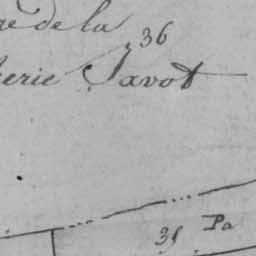 re de la
36
lerie Javot
31 Pa